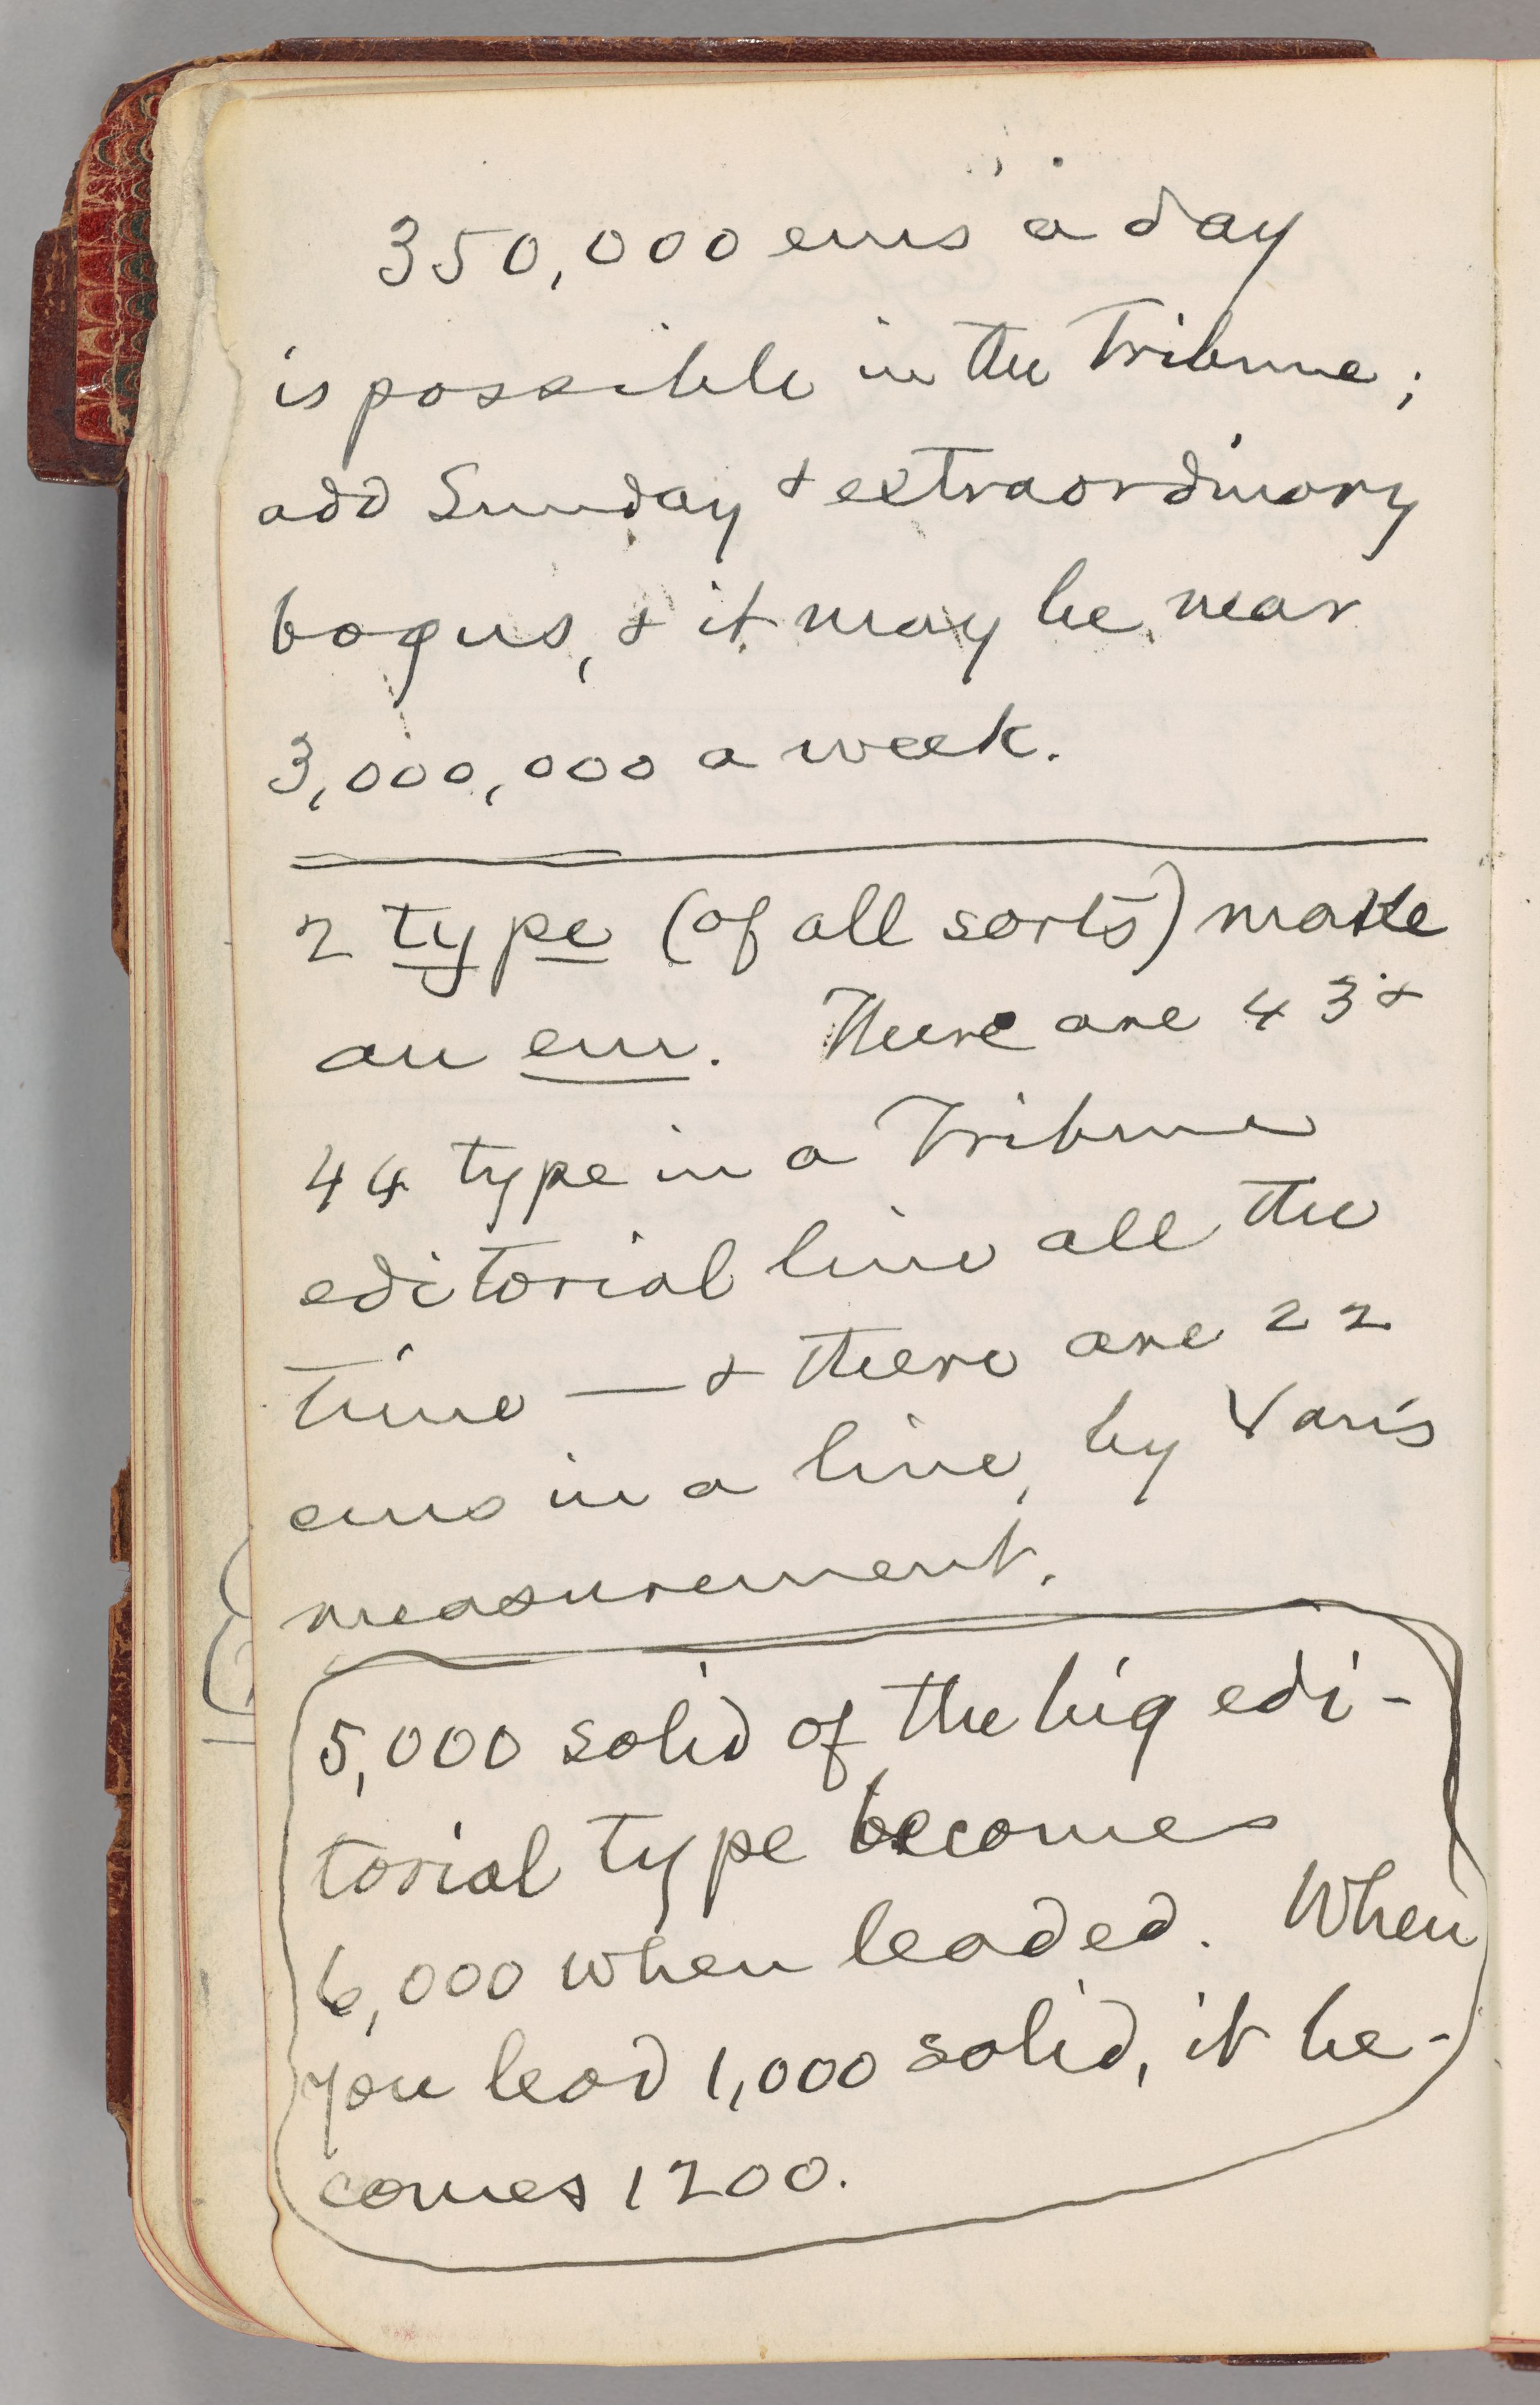 350,000 ems a day
is possible in the Tribune;
add Sunday & extraordinary
bogus, & it may be near
3,000,000 a week.
2 type (of all sorts) make
an em. There are 43 &
44 type in a Tribune
editorial line all the
time — & there are 22
ems in a line, by Van's
measurement.
5,000 solid of the big edi-
torial type becomes
6,000 when leaded. When
you lead 1,000 solid, it be-
comes 1200.